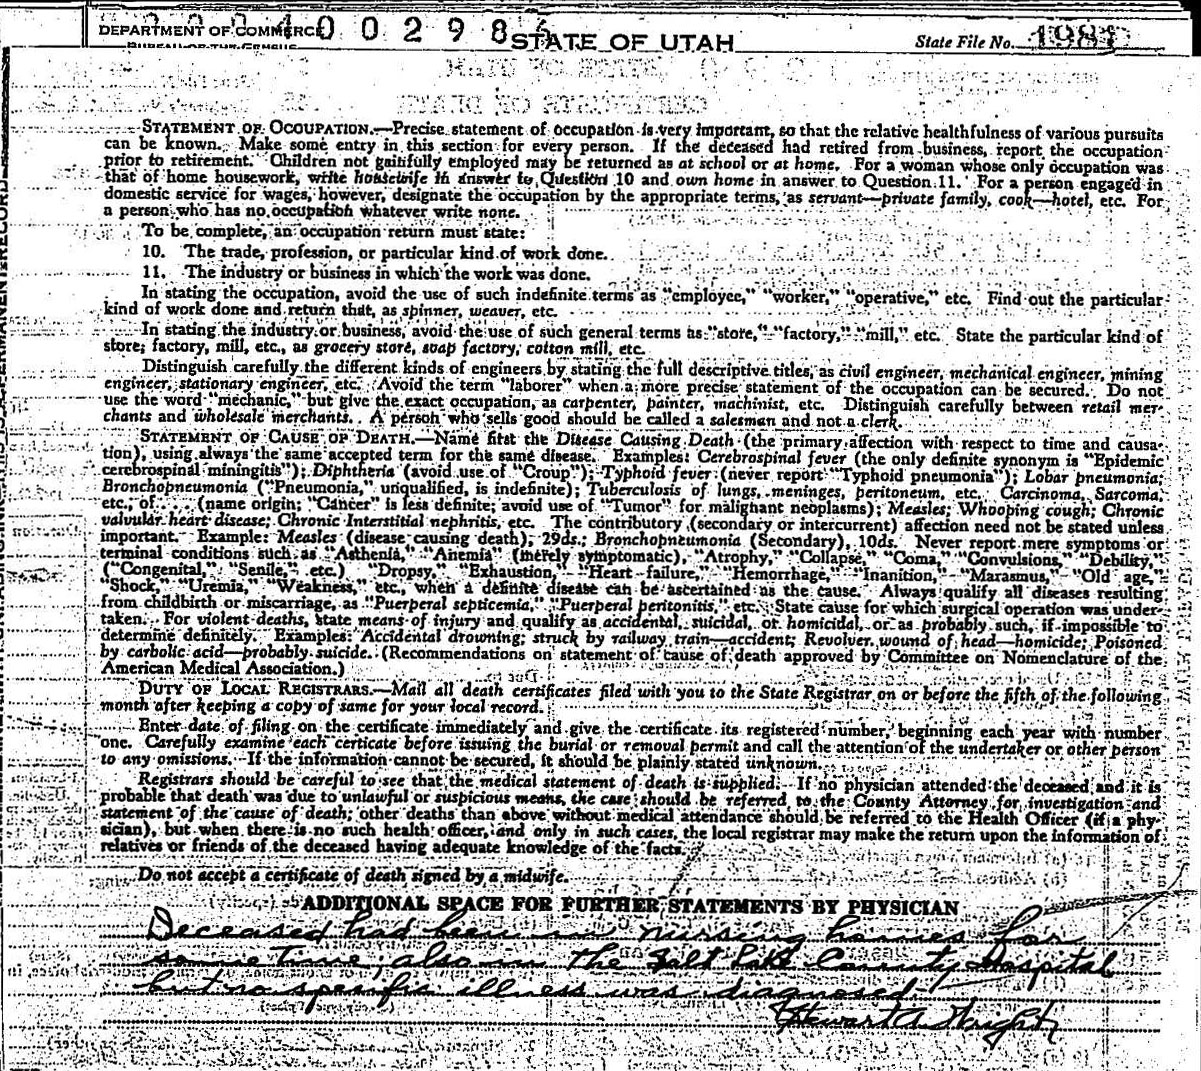 DEPARTMENT OF COMMERCE
BUREAU OF THE CENSUS
0 0 2 9 8
STATE OF UTAH
State File No. 1981
STATEMENT OF OCCUPATION.—Precise statement of occupation is very important, so that the relative healthfulness of various pursuits
can be known. Make some entry in this section for every person. If the deceased had retired from business, report the occupation
prior to retirement. Children not gainfully employed may be returned as at school or at home. For a woman whose only occupation was
that of home housework, write housewife in answer to Question 10 and own home in answer to Question 11. For a person engaged in
domestic service for wages, however, designate the occupation by the appropriate terms, as servant—private family, cook—hotel, etc. For
a person who has no occupation whatever write none.
To be complete, an occupation return must state:
10. The trade, profession, or particular kind of work done.
11. The industry or business in which the work was done.
In stating the occupation, avoid the use of such indefinite terms as "employee," "worker," "operative," etc. Find out the particular
kind of work done and return that, as spinner, weaver, etc.
In stating the industry or business, avoid the use of such general terms as "store," "factory," "mill," etc. State the particular kind of
store, factory, mill, etc., as grocery store, soap factory, cotton mill, etc.
Distinguish carefully the different kinds of engineers by stating the full descriptive titles, as civil engineer, mechanical engineer, mining
engineer, stationary engineer, etc. Avoid the term "laborer" when a more precise statement of the occupation can be secured. Do not
use the word "mechanic," but give the exact occupation, as carpenter, painter, machinist, etc. Distinguish carefully between retail mer-
chants and wholesale merchants. A person who sells good should be called a salesman and not a clerk.
STATEMENT OF CAUSE OF DEATH.—Name first the Disease Causing Death (the primary affection with respect to time and causa-
tion), using always the same accepted term for the same disease. Examples: Cerebrospinal fever (the only definite synonym is "Epidemic
cerebrospinal miningitis"); Diphtheria (avoid use of "Croup"); Typhoid fever (never report "Typhoid pneumonia"); Lobar pneumonia;
Bronchopneumonia ("Pneumonia," unqualified, is indefinite); Tuberculosis of lungs, meninges, peritoneum, etc. Carcinoma, Sarcoma,
etc., of..... (name origin; "Cancer" is less definite; avoid use of "Tumor" for malignant neoplasms); Measles; Whooping cough; Chronic
valvular heart disease; Chronic Interstitial nephritis, etc. The contributory (secondary or intercurrent) affection need not be stated unless
important. Example: Measles (disease causing death), 29ds.; Bronchopneumonia (Secondary), 10ds. Never report mere symptoms or
terminal conditions such as "Asthenia," "Anemia" (merely symptomatic), "Atrophy," "Collapse," "Coma," "Convulsions," "Debility,"
("Congenital," "Senile," etc.) "Dropsy," "Exhaustion," "Heart failure," "Hemorrhage," "Inanition," "Marasmus," "Old age,"
"Shock," "Uremia," "Weakness," etc., when a definite disease can be ascertained as the cause. Always qualify all diseases resulting
from childbirth or miscarriage, as "Puerperal septicemia," "Puerperal peritonitis," etc. State cause for which surgical operation was under-
taken. For violent deaths, state means of injury and qualify as accidental, suicidal, or homicidal, or as probably such, if impossible to
determine definitely. Examples: Accidental drowning; struck by railway train—accident; Revolver wound of head—homicide; Poisoned
by carbolic acid—probably suicide. (Recommendations on statement of cause of death approved by Committee on Nomenclature of the
American Medical Association.)
DUTY OF LOCAL REGISTRARS.—Mail all death certificates filed with you to the State Registrar on or before the fifth of the following
month after keeping a copy of same for your local record.
Enter date of filing on the certificate immediately and give the certificate its registered number, beginning each year with number
one. Carefully examine each certicate before issuing the burial or removal permit and call the attention of the undertaker or other person
to any omissions. If the information cannot be secured, it should be plainly stated unknown.
Registrars should be careful to see that the medical statement of death is supplied. If no physician attended the deceased and it is
probable that death was due to unlawful or suspicious means, the case should be referred to the County Attorney for investigation and
statement of the cause of death; other deaths than above without medical attendance should be referred to the Health Officer (if a phy-
sician), but when there is no such health officer, and only in such cases, the local registrar may make the return upon the information of
relatives or friends of the deceased having adequate knowledge of the facts.
Do not accept a certificate of death signed by a midwife.
ADDITIONAL SPACE FOR FURTHER STATEMENTS BY PHYSICIAN
Deceased had been in nursing homes for
some time, also in the Salt Lake County Hospital
but no specific illness was diagnosed.
Stewart A. Wright